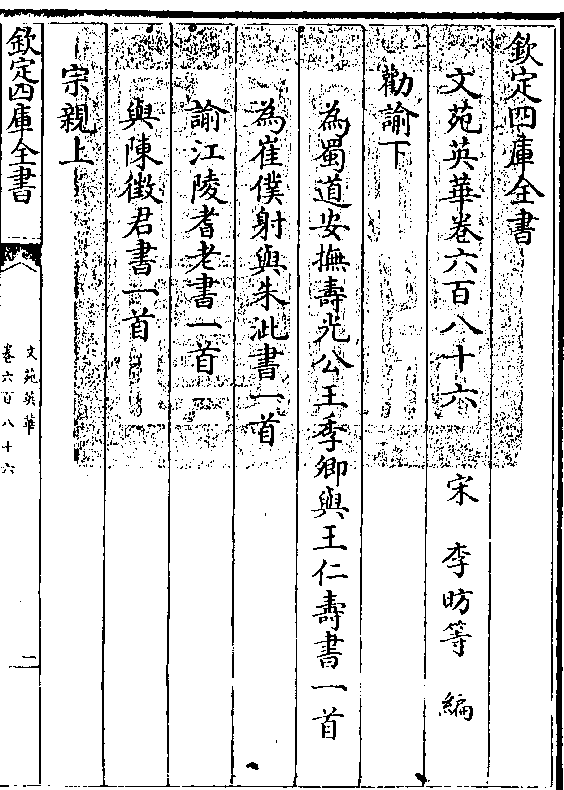 欽定四庫全書
文苑英華卷六百八十六 宋 李昉等 編
勸諭下
為蜀道安撫壽光公王季卿與王仁壽書一首
為崔僕射與朱泚書一首
諭江陵耆老書一首
與陳徵君書一首
宗親上
欽定四庫全書
文苑英華
卷六百八十六
一